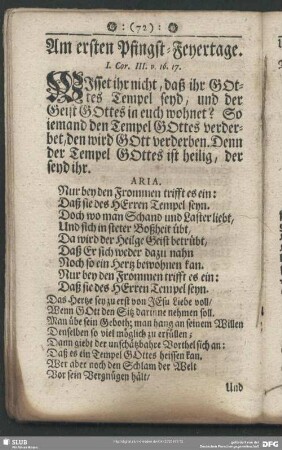 :(72):
Am ersten Pfingst-Feyertage.
I. Cor. III. v. 16. 17.
WIsset ihr nicht, daß ihr GOt-
tes Tempel seyd, und der
Geist GOttes in euch wohnet? So
iemand den Tempel GOttes verder-
bet, den wird GOtt verderben. Denn
der Tempel GOttes ist heilig, der
seyd ihr.
ARIA.
Nur bey den Frommen trifft es ein:
Daß sie des HErren Tempel seyn.
Doch wo man Schand und Laster liebt,
Und sich in steter Boßheit übt,
Da wird der Heilge Geist betrübt,
Daß Er sich weder dazu nahn
Noch so ein Hertz bewohnen kan.
Nur bey den Frommen trifft es ein:
Daß sie des HErren Tempel seyn.
Das Hertze sey zu erst von JEsu Liebe voll/
Wenn GOtt den Sitz darinne nehmen soll.
Man übe sein Geboth; man hang an seinem Willen
Denselben so viel möglich zu erfüllen;
Dann giebt der unschätzbahre Vortheil sich an:
Daß es ein Tempel GOttes heissen kan.
Wer aber noch den Schlam der Welt
Vor sein Vergnügen hält/
Und
SLUB
DFG